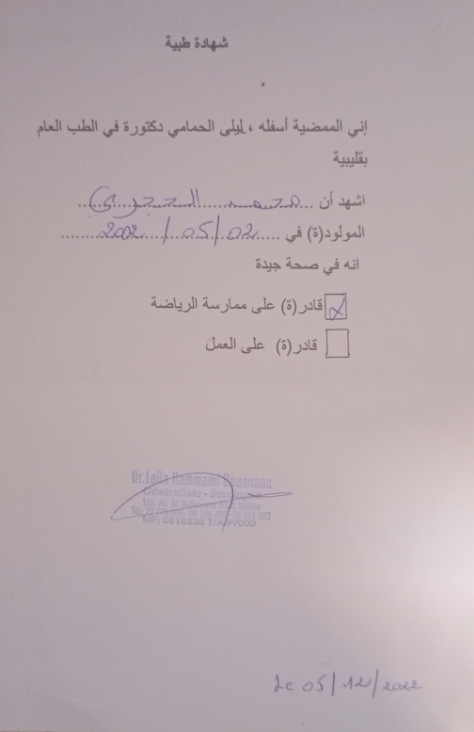 شهادة طبية
إني الممضية أسفله ، ليلى الحمامي دكتورة في الطب العام
بقليبية
اشهد أن ... محمد الحجري ...
المولود(ة) في ..... 02/05/2002 .....
انه في صحة جيدة
قادر(ة) على ممارسة الرياضة
قادر(ة) على العمل
Dr.Leila Hammami
Généraliste -
Le 05/12/2022